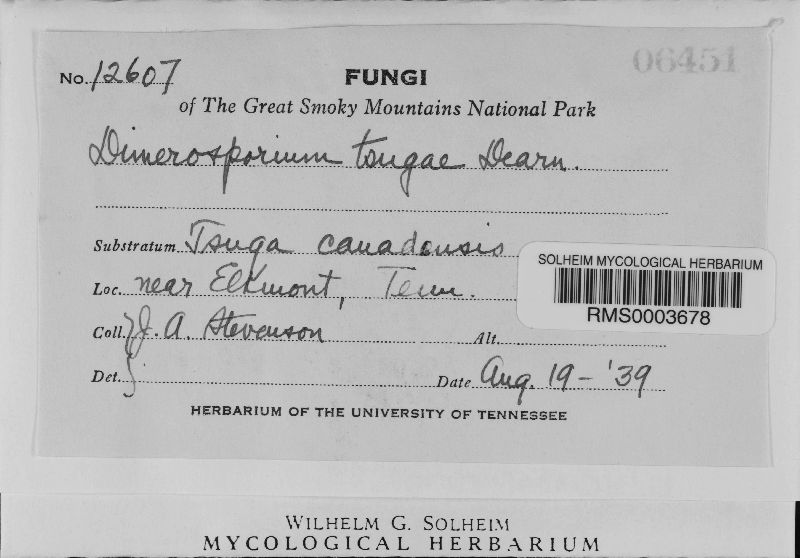 06451
No. 12607 FUNGI
of The Great Smoky Mountains National Park
Dimerosporium tsugae Dearn.
Substratum Tsuga canadensis
Loc. near Elkmont, Tenn.
SOLHEIM MYCOLOGICAL HERBARIUM
RMS0003678
Coll. J. A. Stevenson Alt.
Det. Date Aug. 19 - '39
HERBARIUM OF THE UNIVERSITY OF TENNESSEE
WILHELM G. SOLHEIM
MYCOLOGICAL HERBARIUM